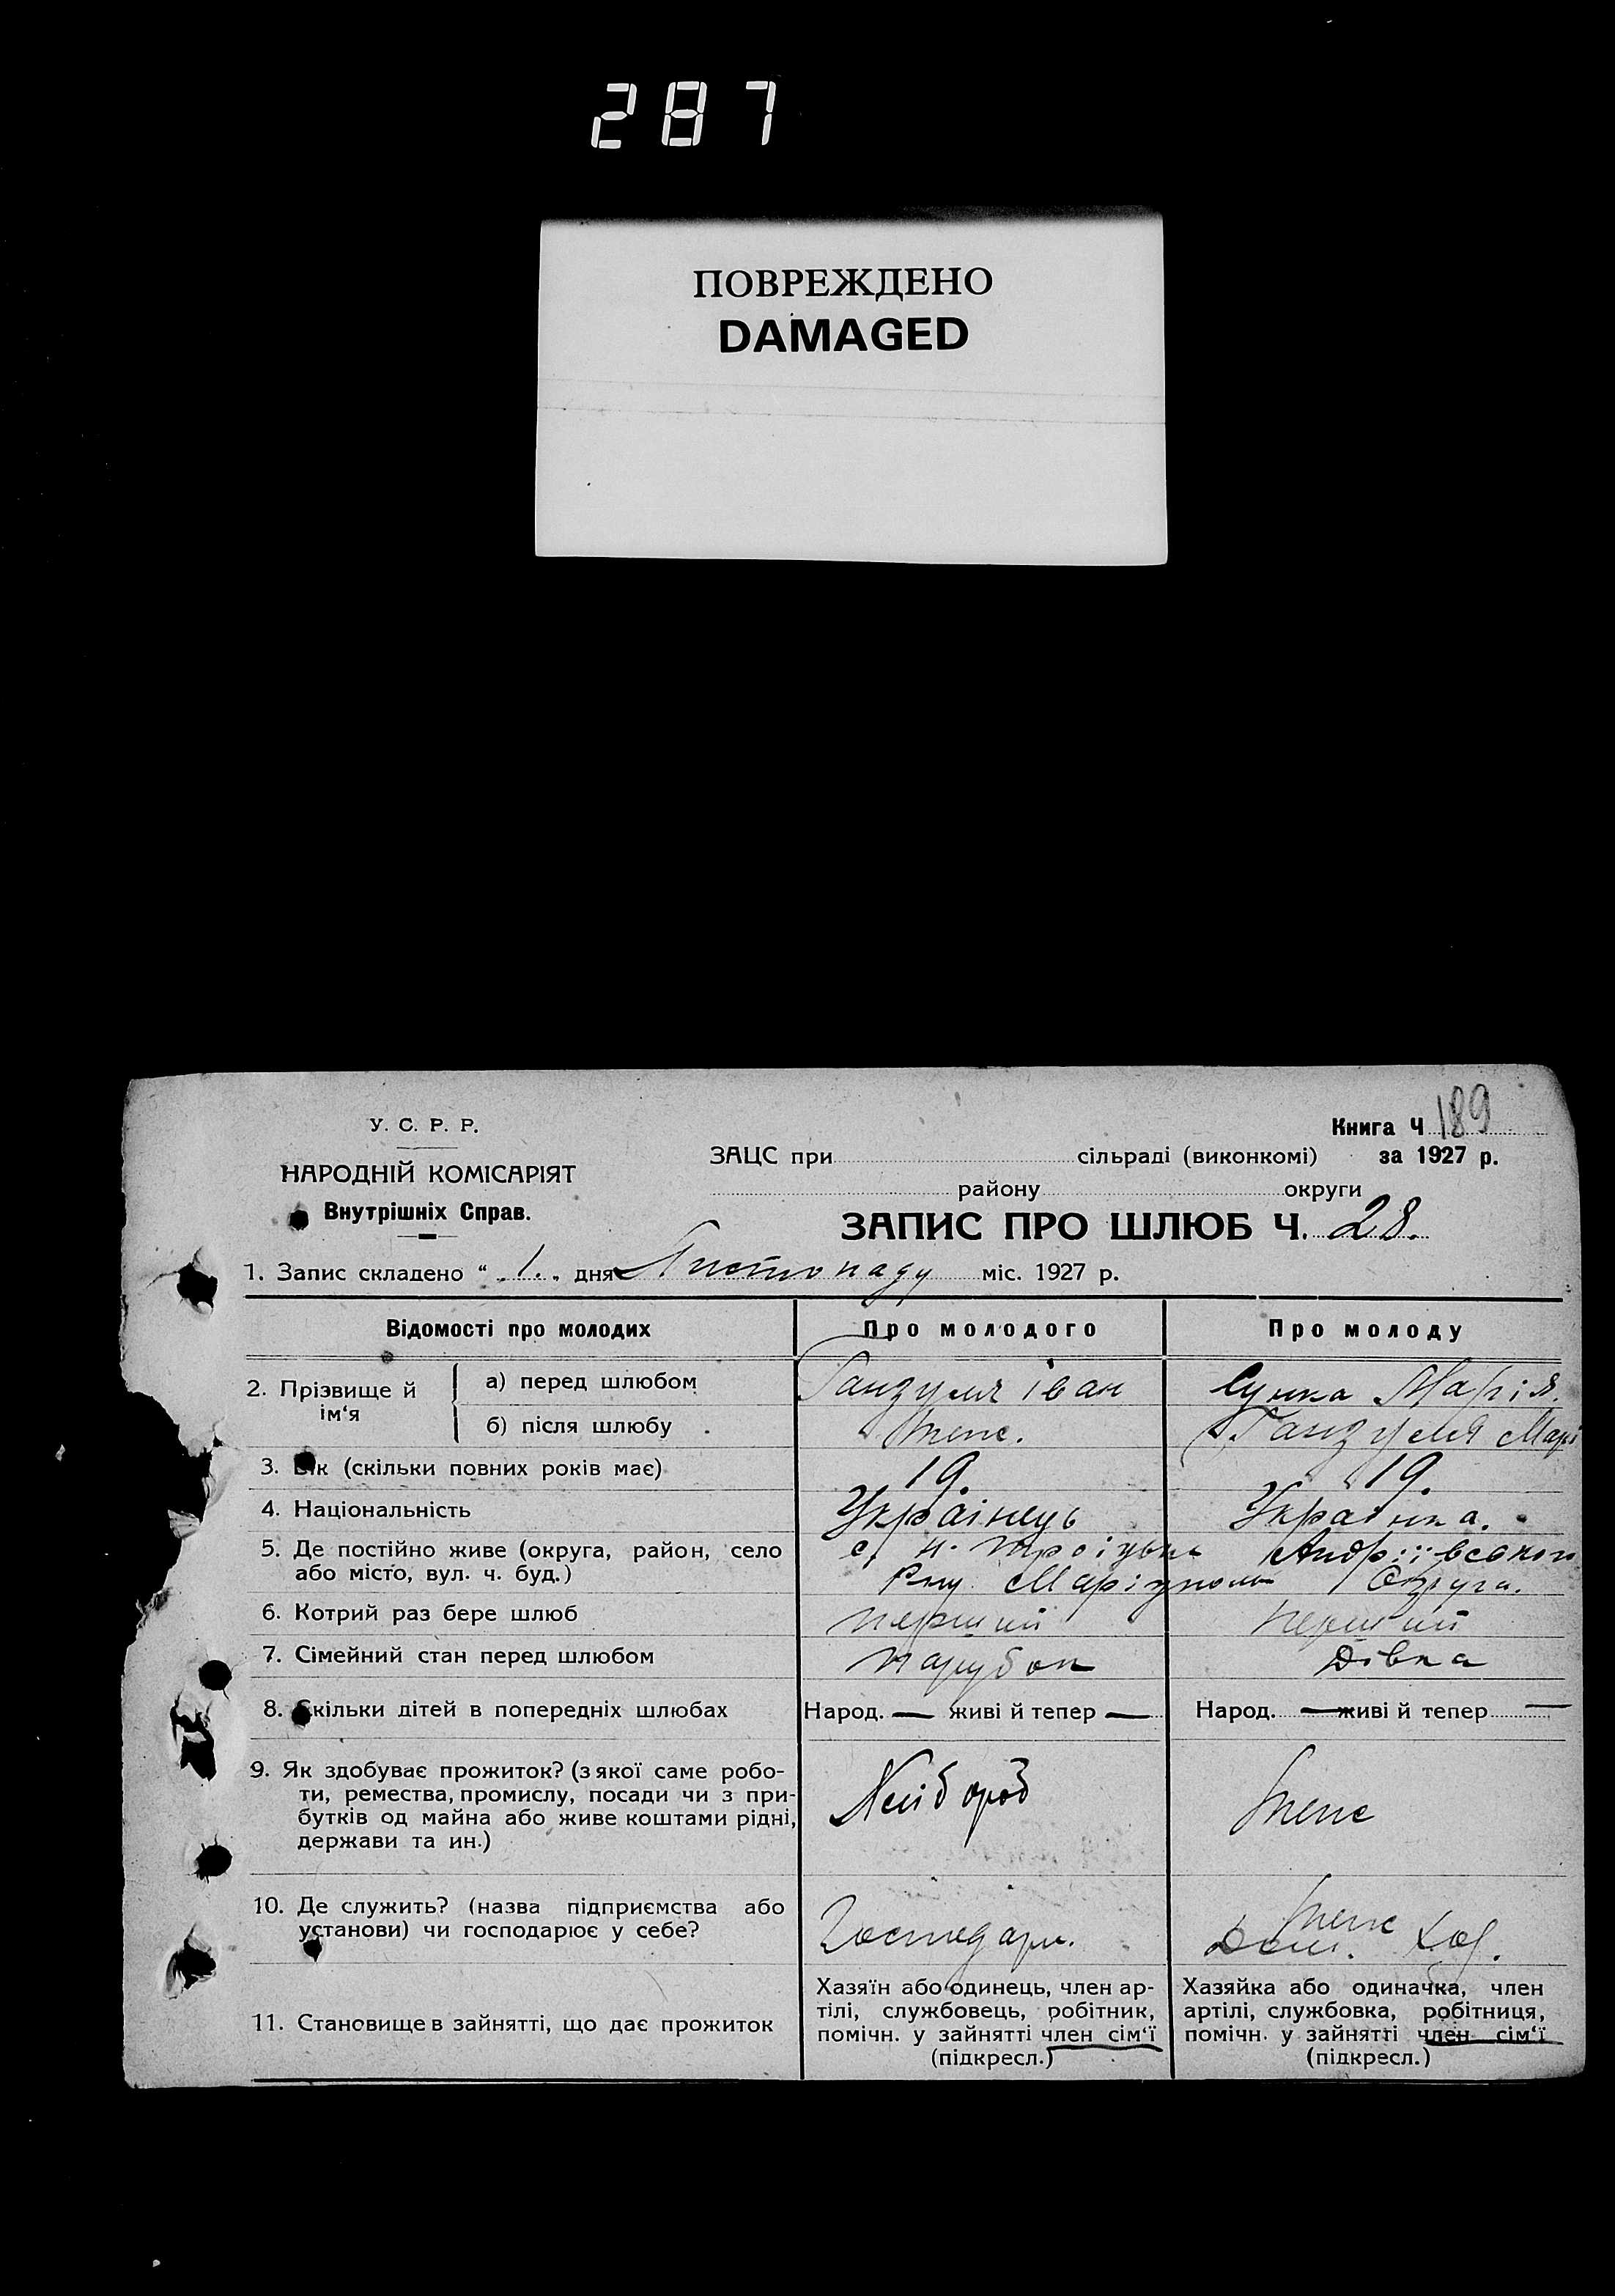 287
ПОВРЕЖДЕНО
DAMAGED
У. С. Р. Р.
НАРОДНІЙ КОМІСАРІЯТ
Внутрішніх Справ.
Книга Ч 189
ЗАЦС при сільраді (виконкомі) за 1927 р.
району округи
ЗАПИС ПРО ШЛЮБ Ч. 28.
1. Запис складено “ 1. „ дня Листопаду міс. 1927 р.
Відомості про молодих Про молодого Про молоду
2. Прізвище й ім‘я
а) перед шлюбом Гандзуля Іван Марія.
б) після шлюбу
3. Вік (скільки повних років має) 19. 19.
4. Національність Українець Українка.
5. Де постійно живе (округа, район, село с. Н. Троіцьке Андріівського
або місто, вул. ч. буд.) Р-ну Маріупольс Округа.
6. Котрий раз бере шлюб перший перший
7. Сімейний стан перед шлюбом парубок Дівка
8. Скільки дітей в попередніх шлюбах Народ. — живі й тепер — Народ. — живі й тепер —
9. Як здобуває прожиток? (з якої саме робо-
ти, ремества, промислу, посади чи з при-
бутків од майна або живе коштами рідні,
держави та ин.)
Хлібороб
10. Де служить? (назва підприємства або
установи) чи господарює у себе?
11. Становище в зайнятті, що дає прожиток
Хазяїн або одинець, член ар-
тілі, службовець, робітник,
помічн. у зайнятті член сім‘ї
(підкресл.)
Хазяйка або одиначка, член
артілі, службовка, робітниця,
помічн. у зайнятті член сім‘ї
(підкресл.)